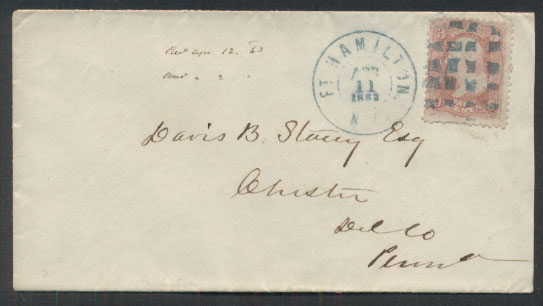 Rec Apr 12. 63
Ans " "
FT. HAMILTON
APR
11
1863
N.Y.
Davis B. Stacey Esq
Chester
Del Co
Penna